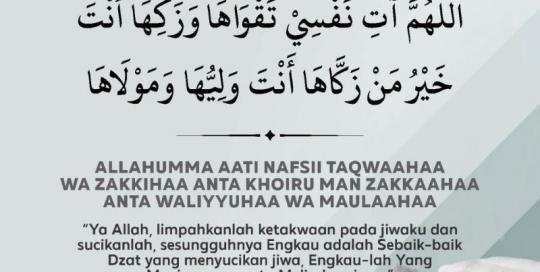 اللَّهُمَّ آتِ نَفْسِيْ تَقْوَاهَا وَزَكِّهَا أَنْتَ
خَيْرُ مَنْ زَكَّاهَا أَنْتَ وَلِيُّهَا وَمَوْلَاهَا
ALLAHUMMA AATI NAFSII TAQWAAHAA
WA ZAKKIHAA ANTA KHOIRU MAN ZAKKAAHAA
ANTA WALIYYUHAA WA MAULAAHAA
"Ya Allah, limpahkanlah ketakwaan pada jiwaku dan
sucikanlah, sesungguhnya Engkau adalah Sebaik-baik
Dzat yang menyucikan jiwa, Engkau-lah Yang